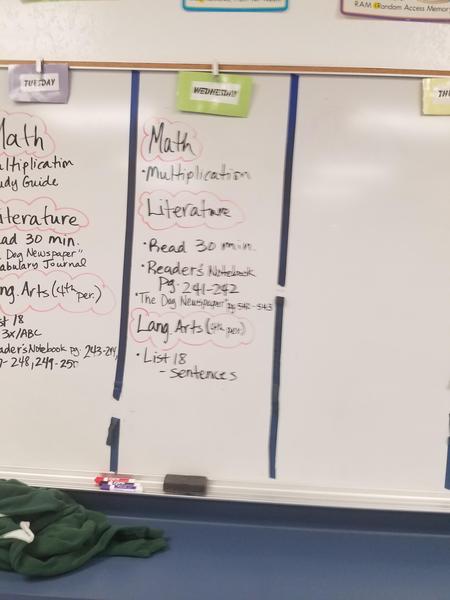 RAM (Random Access Memory
TUESDAY
Math
ultiplication
udy Guide
iterature
ead 30 min.
Dog Newspaper"
abulary Journal
ng. Arts (4th per.)
st 18
3x/ABC
eader's Notebook pg. 243-244,
248, 249-25
WEDNESDAY
Math
• Multiplication
Literature
• Read 30 min.
• Reader's Notebook
Pg. 241-242
• "The Dog Newspaper" pg. 542-543
Lang. Arts (4th per.)
• List 18
- Sentences
TH